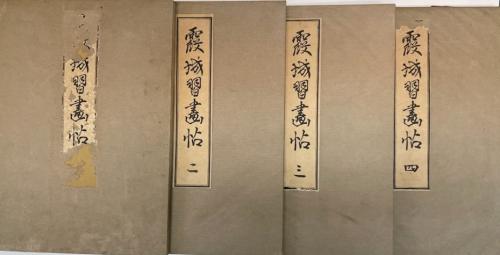 城習畫帖
霞城習畫帖 二
霞城習畫帖 三
霞城習畫帖 四